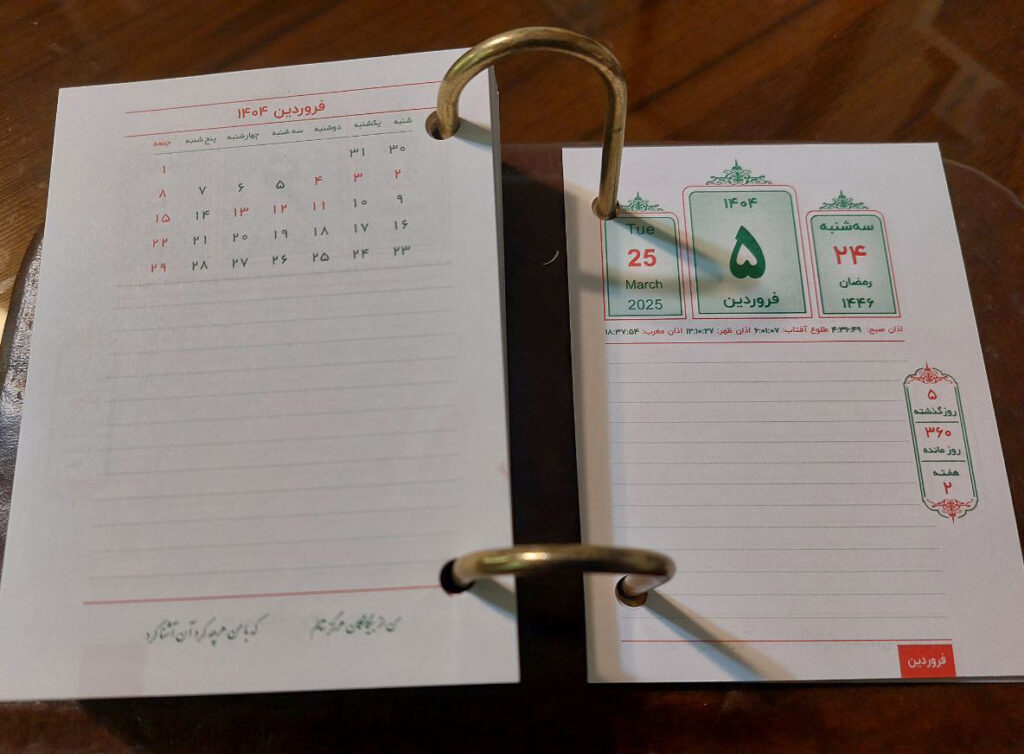 سه‌شنبه
۲۴
رمضان
۱۴۴۶
۱۴۰۴
۵
فروردین
Tue
25
March
2025
اذان صبح: ۴:۳۶:۴۹ طلوع آفتاب: ۶:۰۱:۰۷ اذان ظهر: ۱۲:۱۰:۲۷ اذان مغرب: ۱۸:۳۷:۵۴
۵
روز گذشته
۳۶۰
روز مانده
هفته
۲
فروردین
فروردین ۱۴۰۴
شنبه یکشنبه دوشنبه سه شنبه چهارشنبه پنج شنبه جمعه
۳۰ ۳۱ ۱
۲ ۳ ۴ ۵ ۶ ۷ ۸
۹ ۱۰ ۱۱ ۱۲ ۱۳ ۱۴ ۱۵
۱۶ ۱۷ ۱۸ ۱۹ ۲۰ ۲۱ ۲۲
۲۳ ۲۴ ۲۵ ۲۶ ۲۷ ۲۸ ۲۹
من از بیگانگان هرگز ننالم که با من هرچه کرد آن آشنا کرد